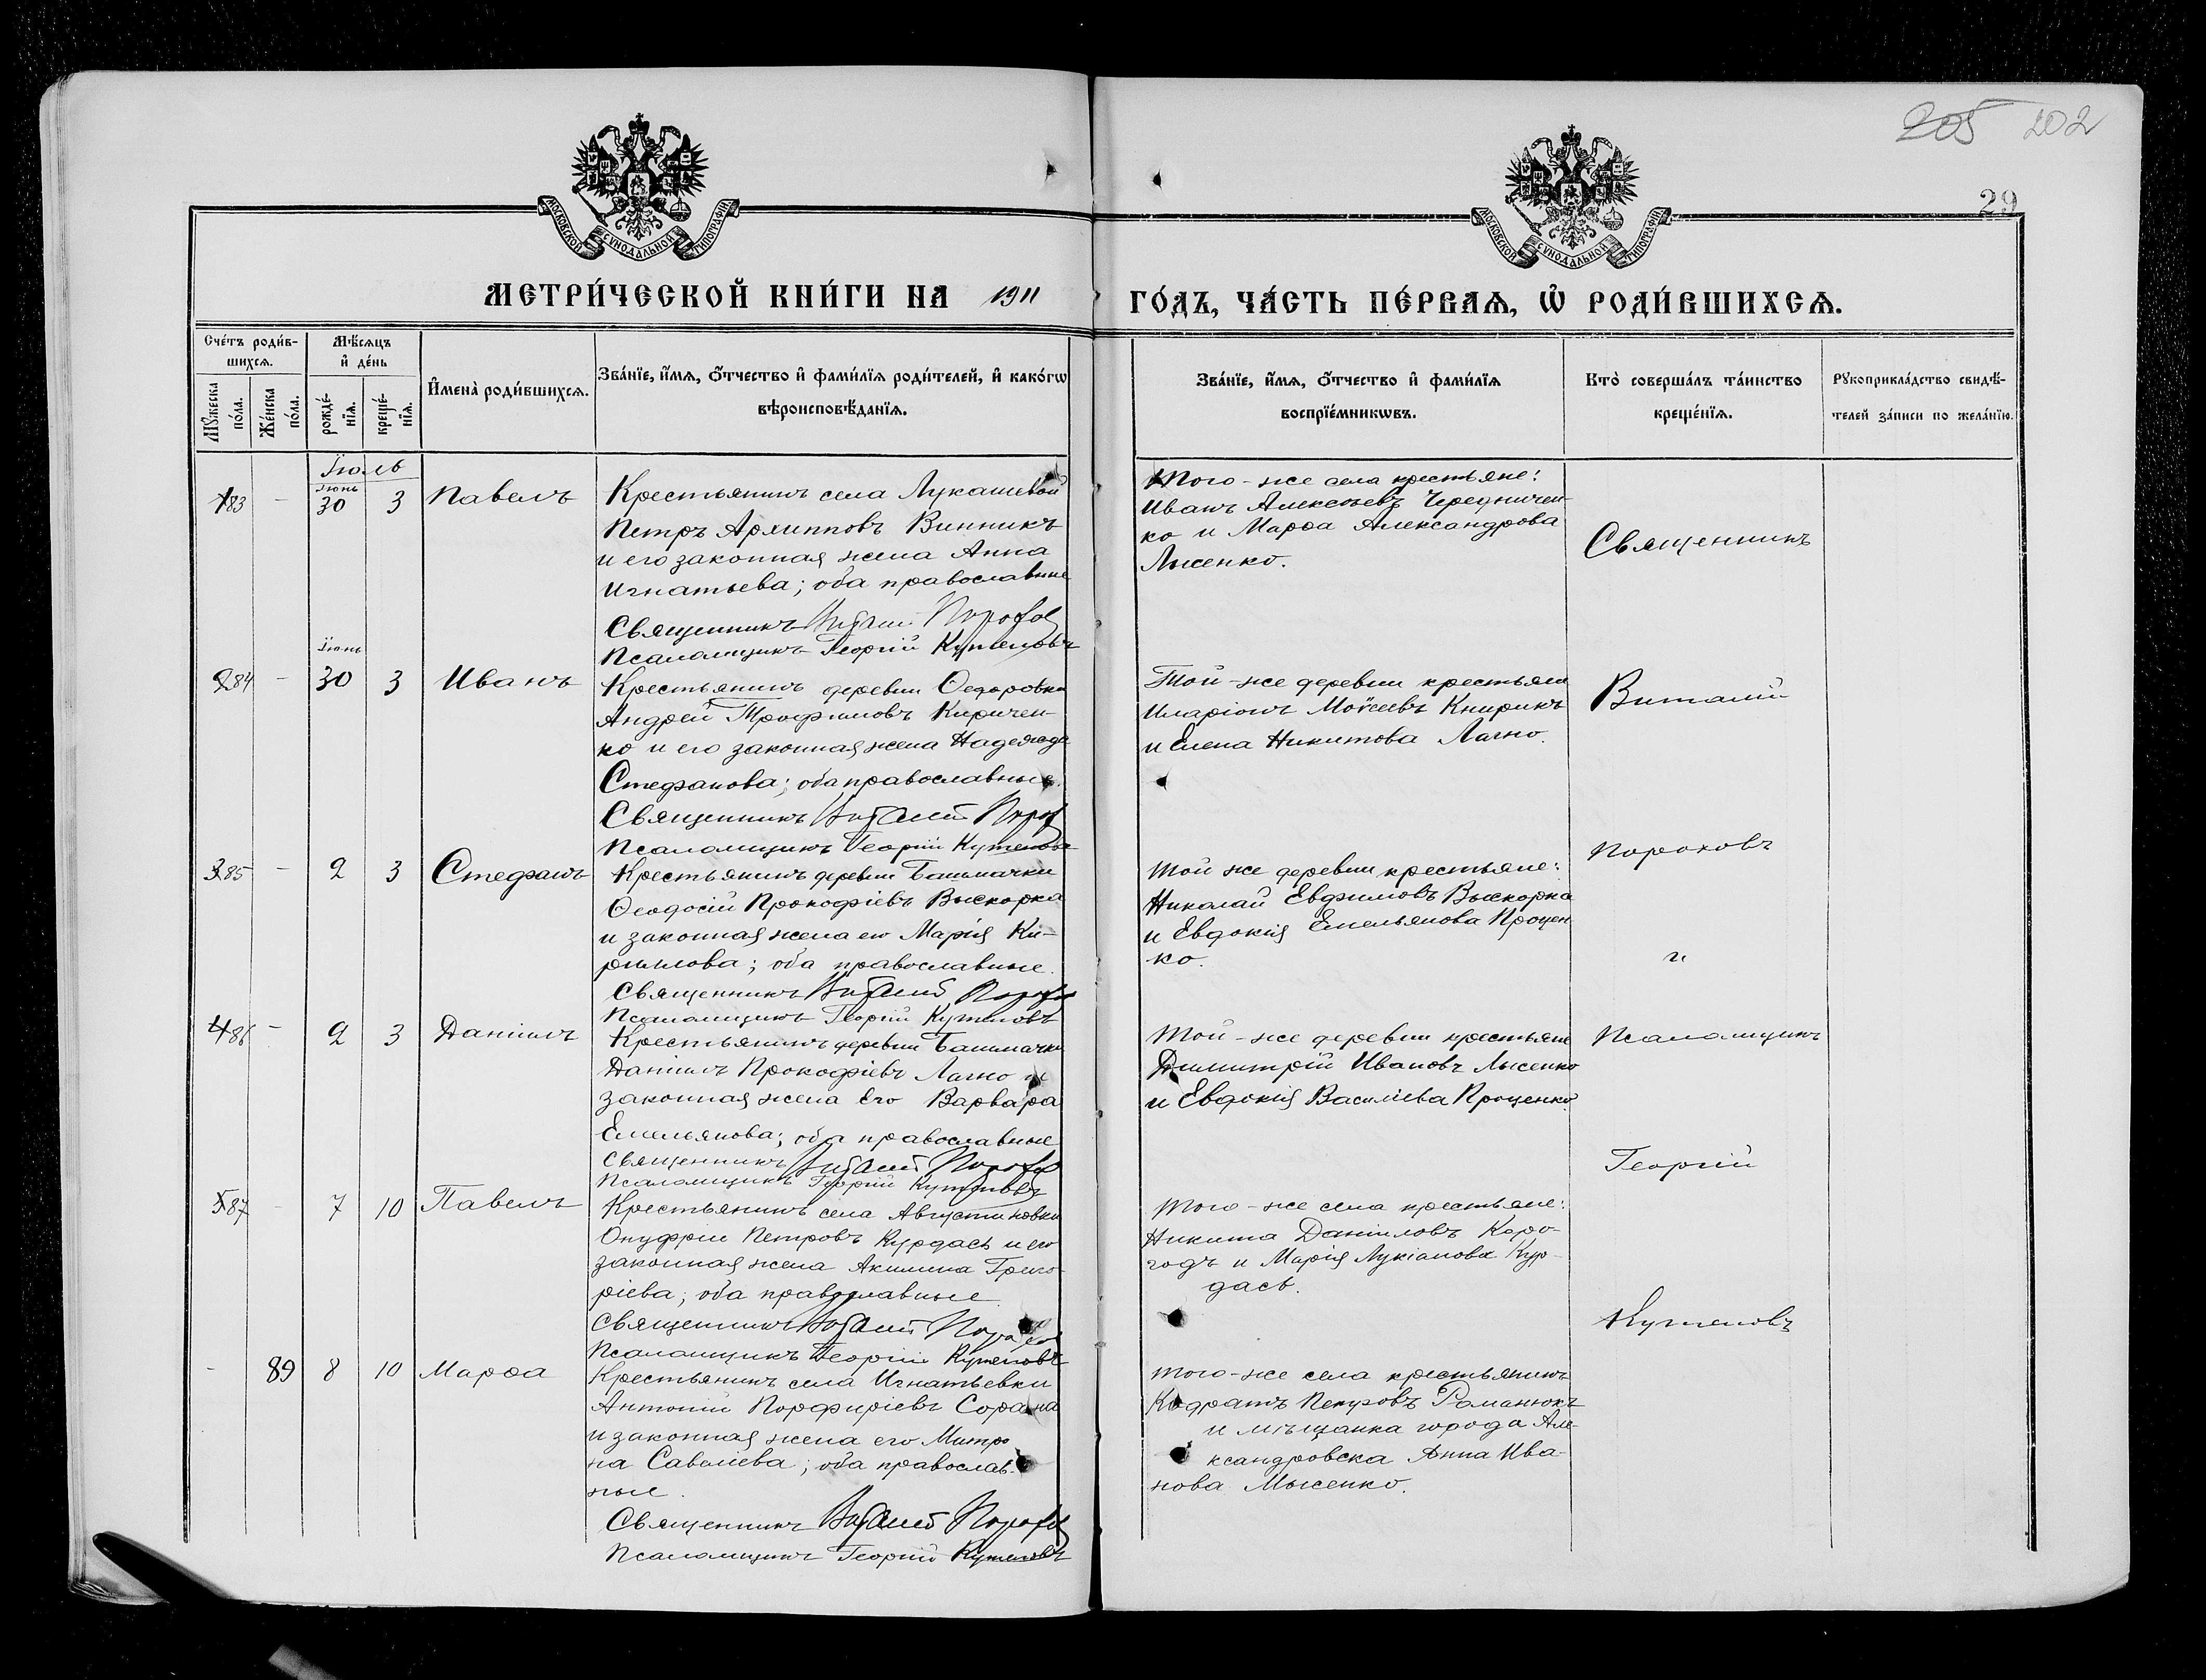 205 202
29
МОСКОВСКОЙ СУНОДАЛЬНОЙ ТИПОГРАФІИ
МОСКОВСКОЙ СУНОДАЛЬНОЙ ТИПОГРАФІИ
МЕТРИ́ЧЕСКОЙ КНИ́ГИ НА 1911 ГО́ДЪ, ЧА́СТЬ ПЕ́РВАѦ, Ѽ РОДИ́ВШИХСѦ.
Сче́тъ роди́в-
шихсѧ.
Мꙋ́жеска по́ла.
Же́нска по́ла.
Мѣ́сѧцъ
и҆ де́нь
рожде́-
нїѧ.
креще́-
нїѧ.
И҆мена̀ роди́вшихсѧ.
Зва́нїе, и҆́мѧ, ѻ҆́тчество и҆ фами́лїѧ роди́телей, и҆ како́гѡ
вѣроисповѣ́данїѧ.
Зва́нїе, и҆́мѧ, ѻ҆́тчество и҆ фами́лїѧ
воспрїе́мникѡвъ.
Кто̀ соверша́лъ та́инство
креще́нїѧ.
Рꙋкоприкла́дство свидѣ́-
телей за́писи по жела́нїю.
Іюль
183 - Іюнь 30 3 Павелъ
Крестьянинъ села Лукашевой
Петръ Архипповъ Винникъ
и его законная жена Анна
Игнатьева; оба православные
Священникъ Виталій Пороховъ
Псаломщикъ Георгій Кутеповъ
Того-же села крестьяне:
Иванъ Алексѣевъ Чередничен-
ко и Марѳа Александрова
Лысенко.
Священникъ
284 - Іюнь 30 3 Иванъ
Крестьянинъ деревни Ѳедоровки
Андрей Трофимовъ Киричен-
ко и его законная жена Надежда
Стефанова; оба православные.
Священникъ Виталій Пороховъ
Псаломщикъ Георгій Кутеповъ
Той-же деревни крестьяне
Иларіонъ Моѵсеевъ Книрикъ
и Елена Никитова Лагно.
Виталій
385 - 2 3 Стефанъ
Крестьянинъ деревни Башмачки
Ѳеодосій Прокофіевъ Выскорка
и законная жена его Марія Ки-
риллова; оба православные.
Священникъ Виталій Пороховъ
Псаломщикъ Георгій Кутеповъ
Той же деревни крестьяне:
Николай Евфимовъ Выскорка
и Евдокія Емельянова Процен
ко.
Пороховъ
и
486 - 2 3 Даніилъ
Крестьянинъ деревни Башмачки
Даніилъ Прокофіевъ Лагно и
законная жена его Варвара
Емельянова; оба православные
Священникъ Виталій Пороховъ
Псаломщикъ Георгій Кутеповъ
Той-же деревни крестьяне
Димитрій Ивановъ Лысенко
и Евдокія Василіева Проценко.
Псаломщикъ
Георгій
587 - 7 10 Павелъ
Крестьянинъ села Августиновки
Онуфрій Петровъ Курдасъ и его
законная жена Акилина Григо-
ріева; оба православные.
Священникъ Виталій Пороховъ
Псаломщикъ Георгій Кутеповъ
Того-же села крестьяне:
Никита Даніиловъ Коро-
годъ и Марія Лукіанова Кур-
дасъ.
Кутеповъ
- 89 8 10 Марѳа
Крестьянинъ села Игнатьевки
Антоній Порфиріевъ Сорана
и законная жена его Матро
на Савеліева; оба православ-
ные.
Священникъ Виталій Пороховъ
Псаломщикъ Георгій Кутеповъ
Того-же села крестьянинъ
Кодратъ Петровъ Романюкъ
и мѣщанка города Але-
ксандровска Анна Ива-
нова Мысенко.